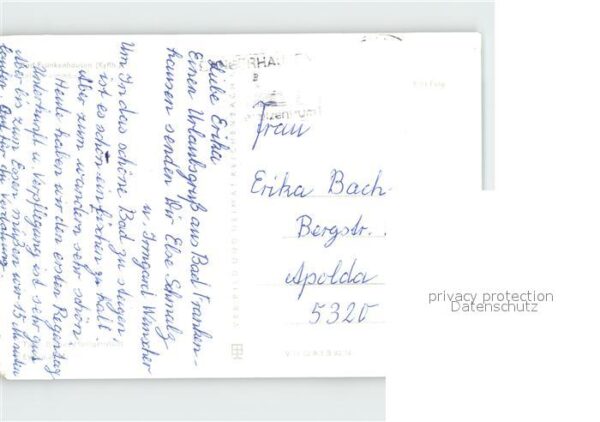 Liebe Erika
Einen Urlaubsgruß aus Bad Franken-
hausen senden Dir Else Schmalz
u. Irmgard Wanzler
Um In das schöne Bad zu steigen
ist es schon ein fixchen zu kalt.
Aber zum wandern sehr schön
Heute haben wir den ersten Regentag
Unterkunft u. Verpflegung ist sehr gut
Aber bis zum Essen müßen wir 15 Minuten
laufen. Gut für die Verdauung.
Bad Frankenhausen (Kyffh.)
Frau
Erika Bach-
Bergstr.
Apolda
5320
privacy protection
Datenschutz